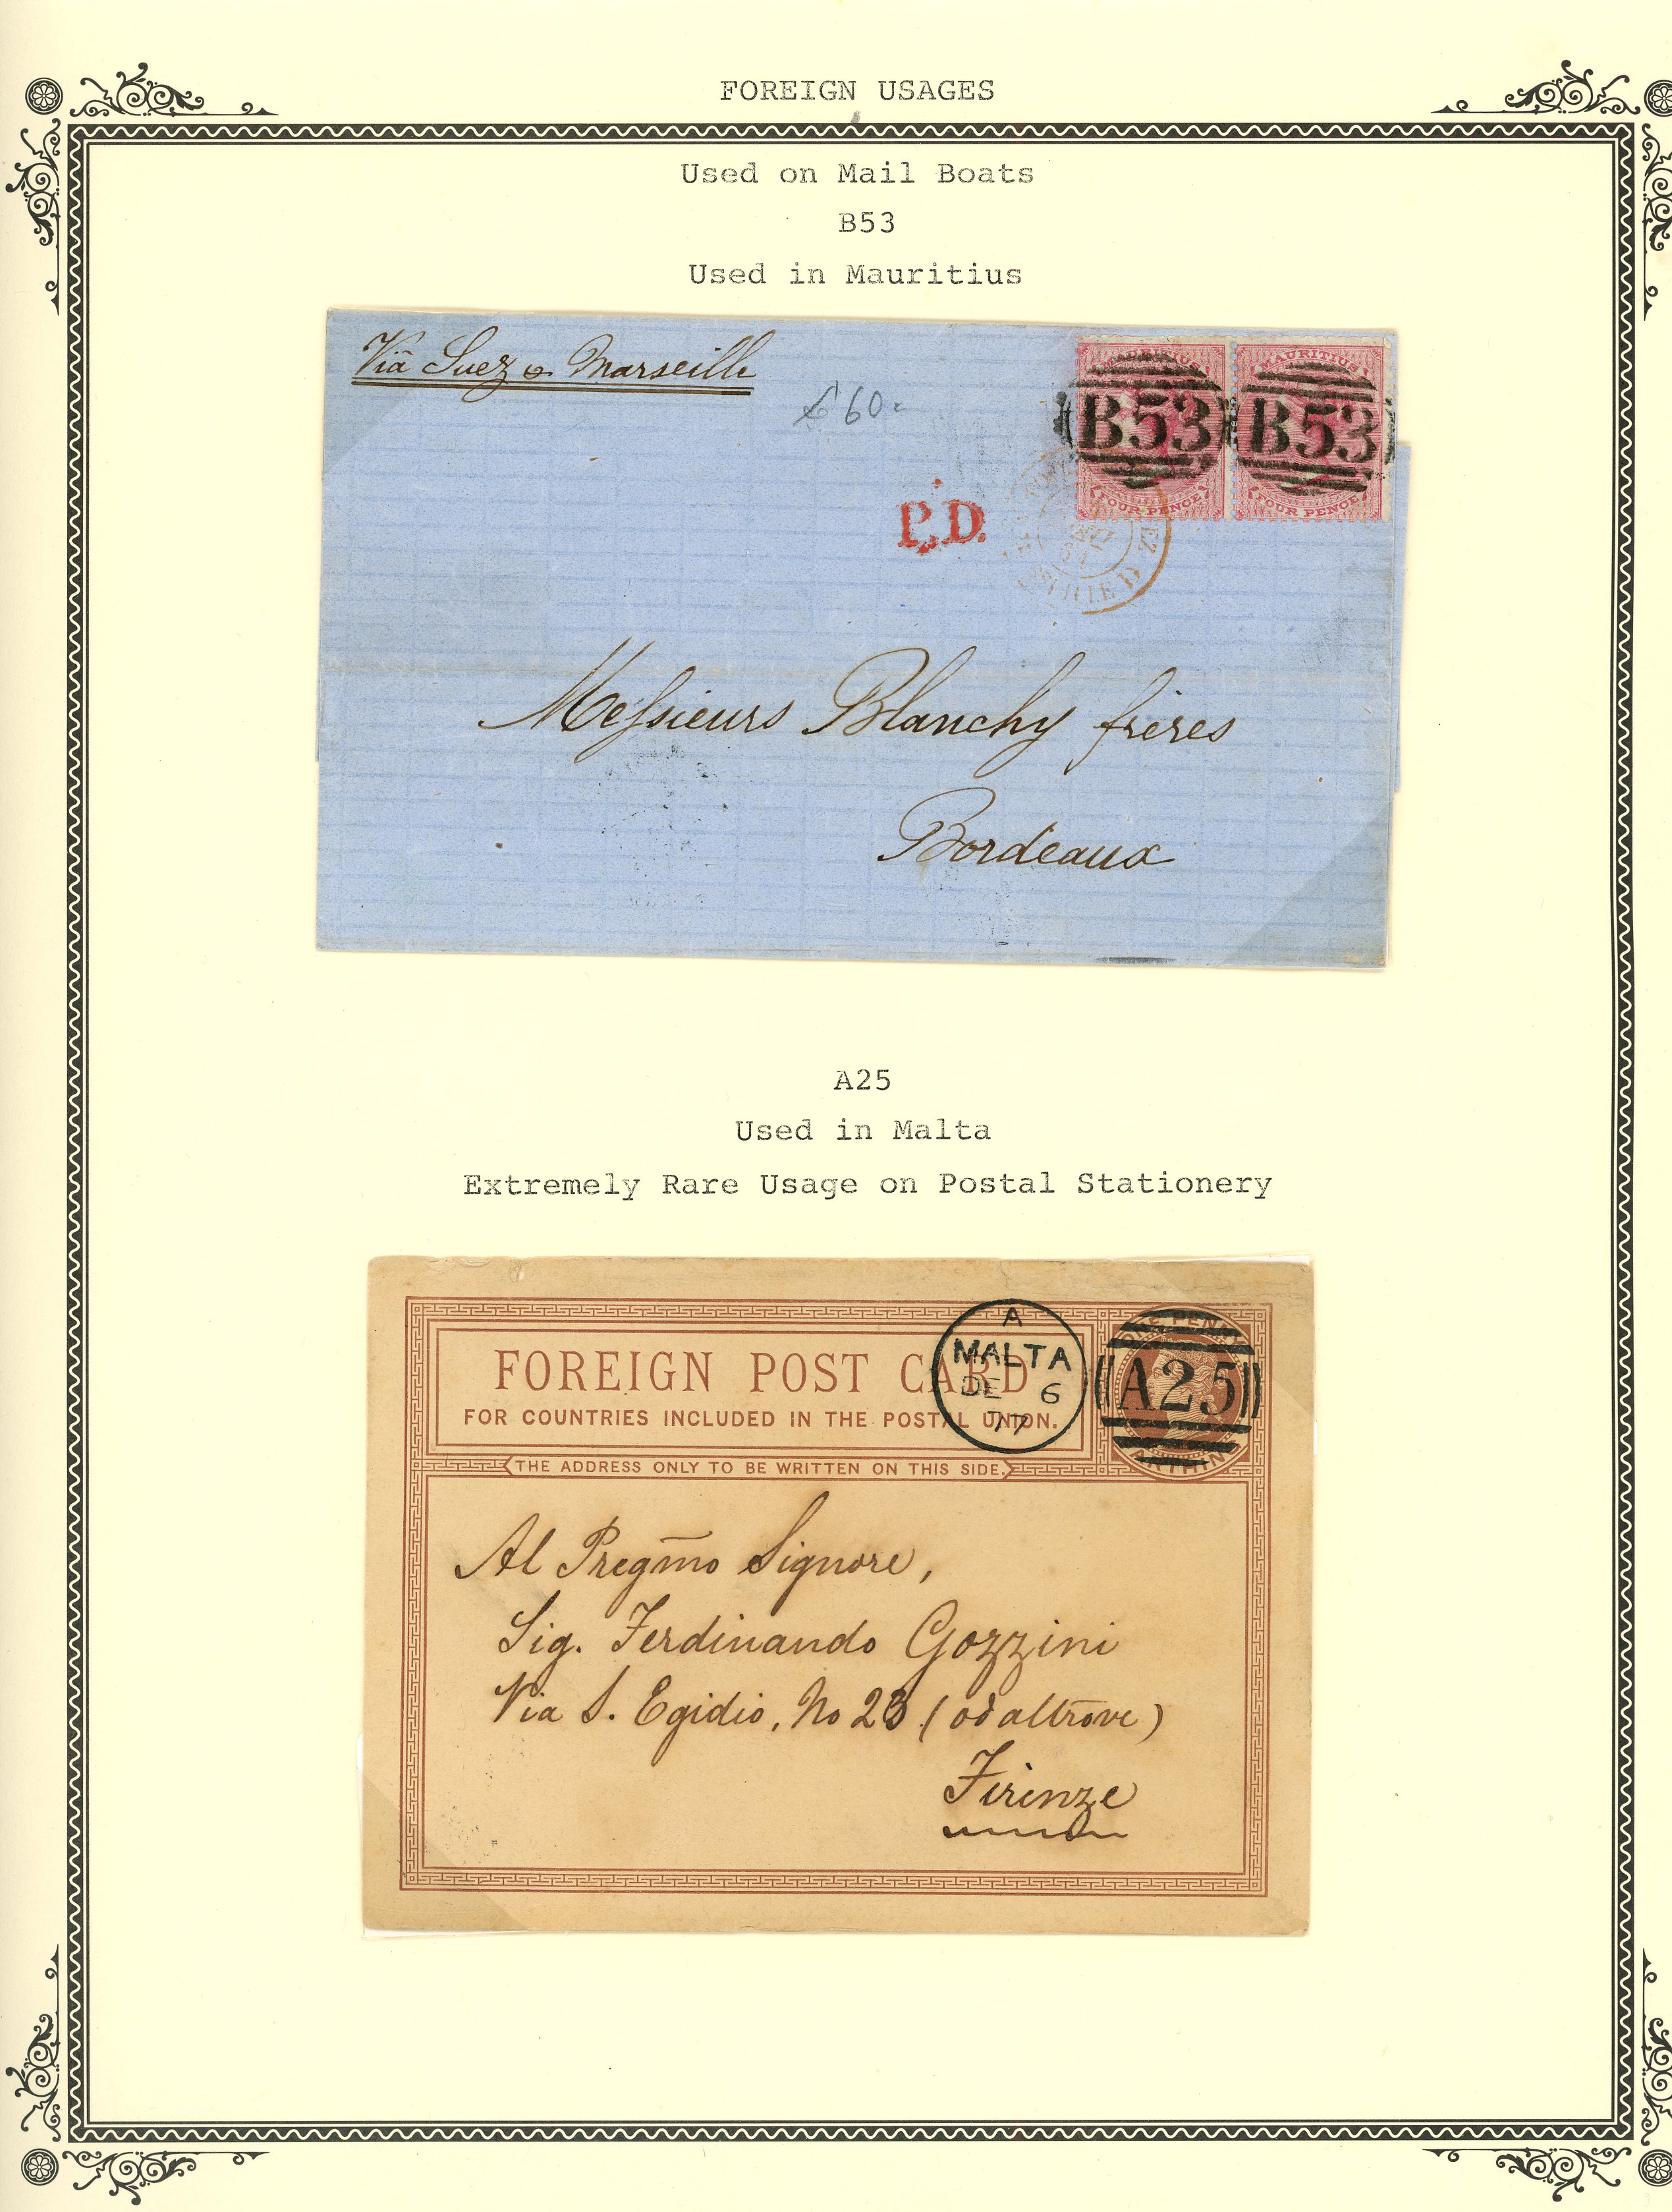 FOREIGN USAGES
Used on Mail Boats
B53
Used in Mauritius
Viâ Suez & Marseille
£60.
MAURITIUS
MAURITIUS
B53
B53
FOUR PENCE
FOUR PENCE
P.D.
Messieurs Blanchy frères
Bordeaux
A25
Used in Malta
Extremely Rare Usage on Postal Stationery
FOREIGN POST CARD
FOR COUNTRIES INCLUDED IN THE POSTAL UNION.
THE ADDRESS ONLY TO BE WRITTEN ON THIS SIDE.
A
MALTA
DE 6
77
ONE PENNY
A25
FARTHING
Al Pregmo Signore,
Sig. Ferdinando Gozzini
Via S. Egidio, No 23 (od altrove)
Firenze